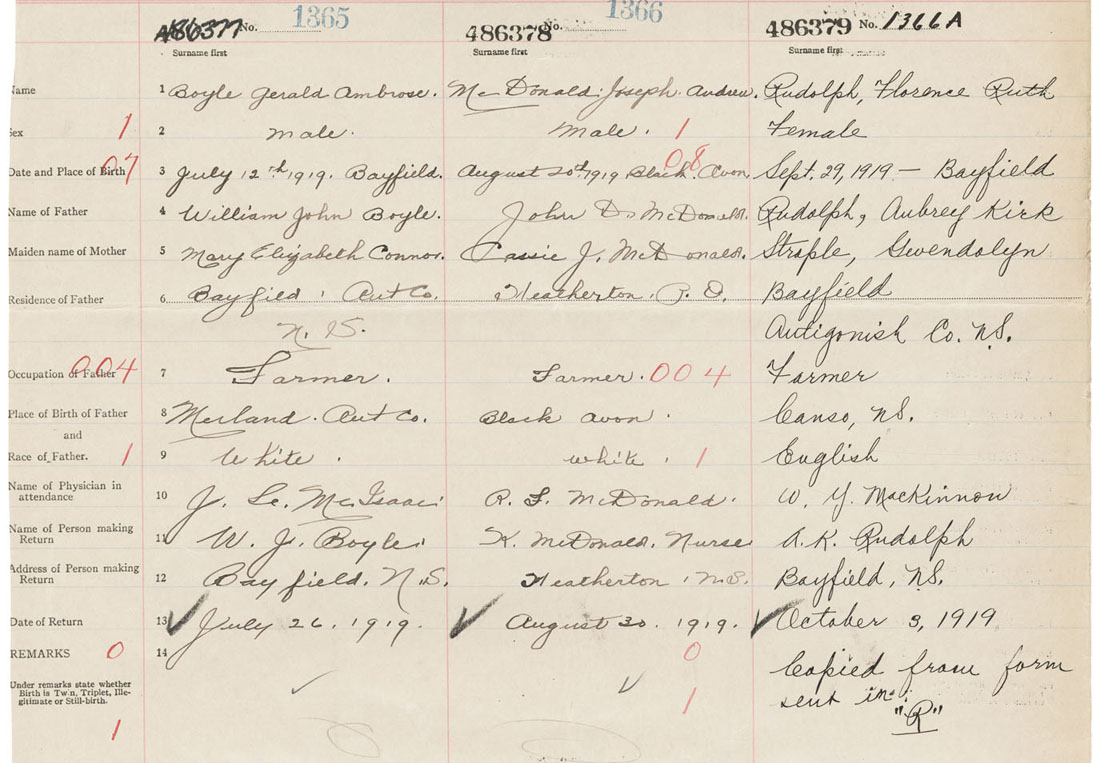 486377 No. 1365 486378 No. 1366 486379 No. 1366A
Surname first Surname first Surname first
Name 1 Boyle Gerald Ambrose. McDonald Joseph Andrew. Rudolph, Florence Ruth
Sex 1 2 male. Male. 1 Female
Date and Place of Birth 07 3 July 12th 1919. Bayfield. August 20th 1919 Black Avon 08 Sept. 29, 1919 — Bayfield
Name of Father 4 William John Boyle. John D. McDonald. Rudolph, Aubrey Kirk
Maiden name of Mother 5 Mary Elizabeth Connor. Cassie J. McDonald. Strople, Gwendolyn
Residence of Father 6 Bayfield, Ant Co. Heatherton. P. O. Bayfield
N. S. Antigonish Co. N.S.
Occupation of Father 004 7 Farmer. Farmer. 004 Farmer
Place of Birth of Father 8 Merland. Ant Co. Black Avon. Canso, N.S.
and
Race of Father. 1 9 White. White. 1 English
Name of Physician in
attendance 10 J. McIsaac R. F. McDonald. W. MacKinnon
Name of Person making
Return 11 W. J. Boyle K. McDonald. Nurse A.K. Rudolph
Address of Person making
Return 12 Bayfield. N.S. Heatherton, N.S. Bayfield, N.S.
Date of Return 13 July 26. 1919. August 30. 1919. October 3, 1919
REMARKS 0 14 0 Copied from form
Under remarks state whether
Birth is Twin, Triplet, Ille-
gitimate or Still-birth. 1 sent in.
1 "R"